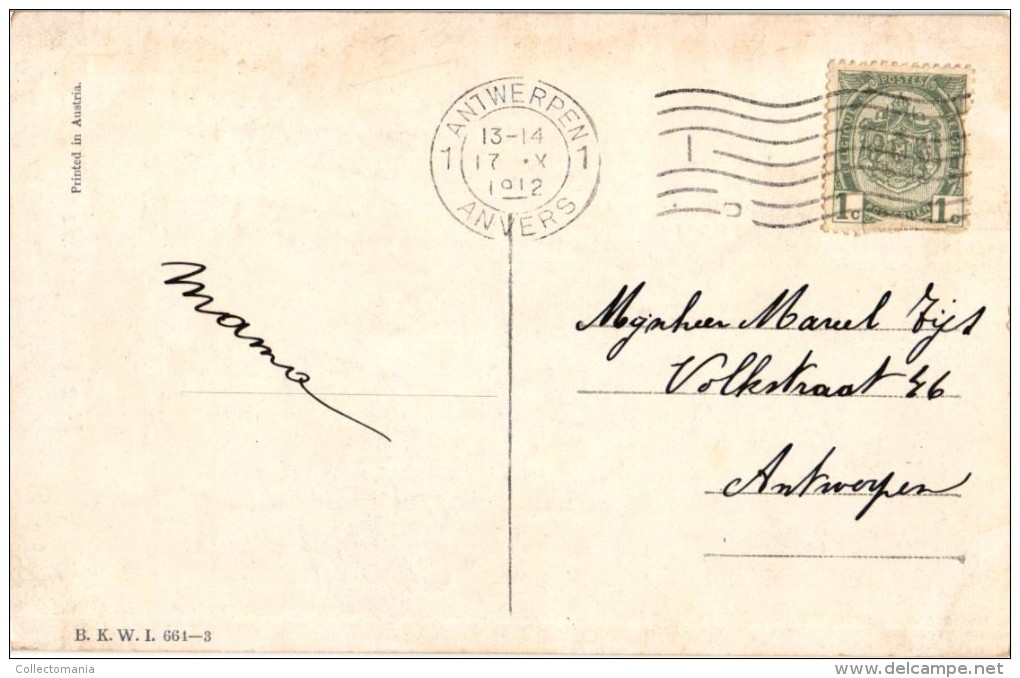 Printed in Austria.
ANTWERPEN
1 13-14 1
17 X
1912
ANVERS
POSTES
1c 1c
Mama
Mijnheer Marcel Zijs
Volkstraat 46
Antwerpen
B. K. W. I. 661—3
Collectomania
delcampe.net